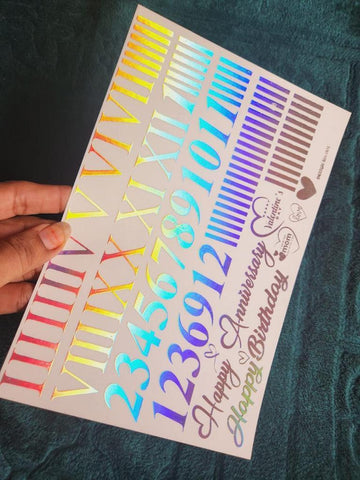 I II III IV V VI VII
VIII IX X XI XII
2 3 4 5 6 7 8 9 10 11
1 2 3 6 9 12
Happy Anniversary
Valentine's
Love
mom
Happy Birthday